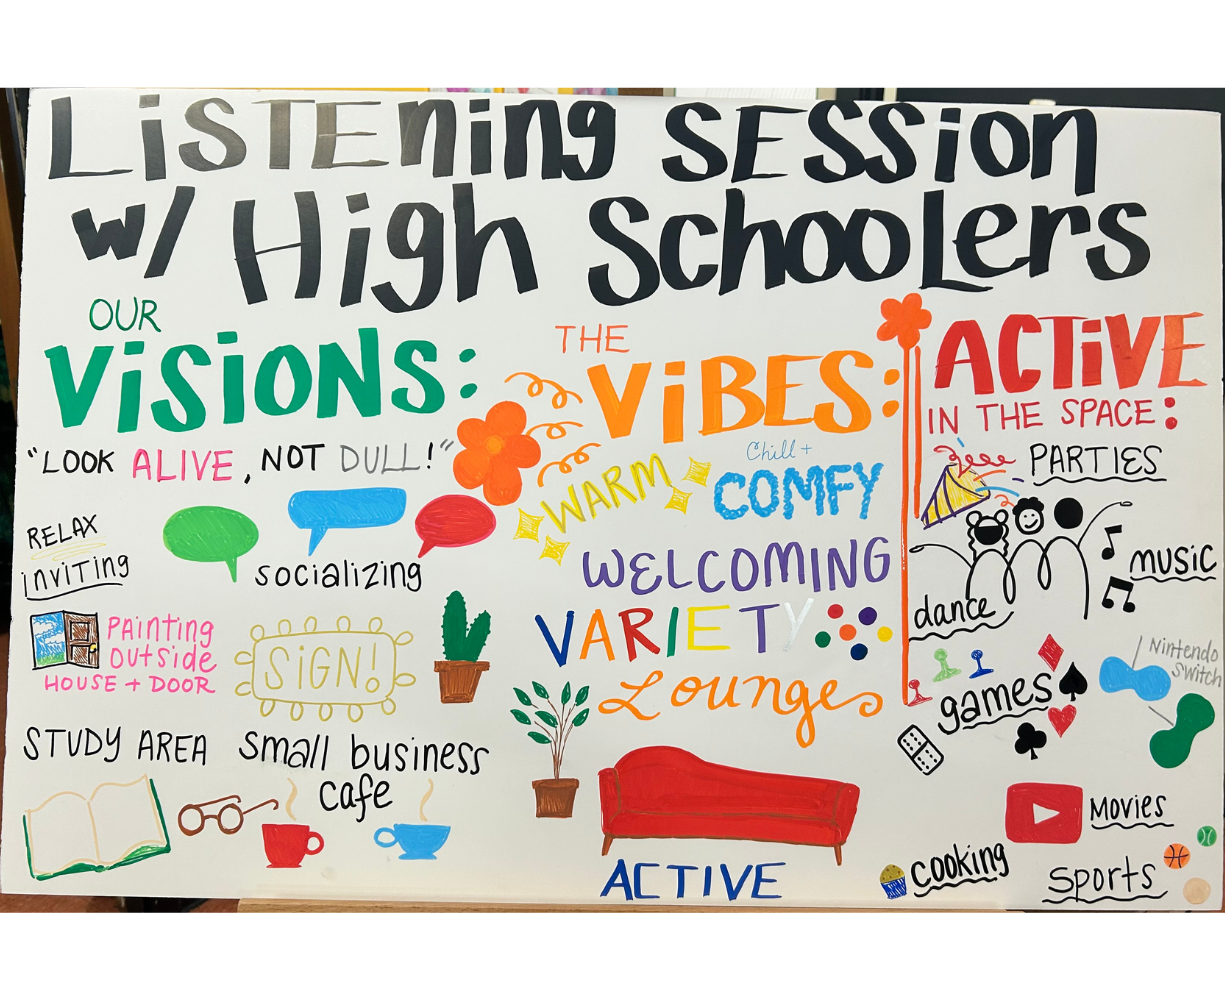 LiSTEning SESSion
w/ High SchooLers
OUR
ViSiONS:
"LOOK ALIVE, NOT DULL!"
RELAX
inViTiNG
socializing
PAinting
OUTSiDE
HOUSE + DOOR
SiGN!
STUDY AREA
small business
cafe
THE
ViBES:
WARM
Chill +
COMFY
WELCOMING
VARIETY
Lounge
ACTIVE
ACTiVE
IN THE SPACE:
PARTIES
music
dance
games
Nintendo
Switch
MOViES
cooking
sports